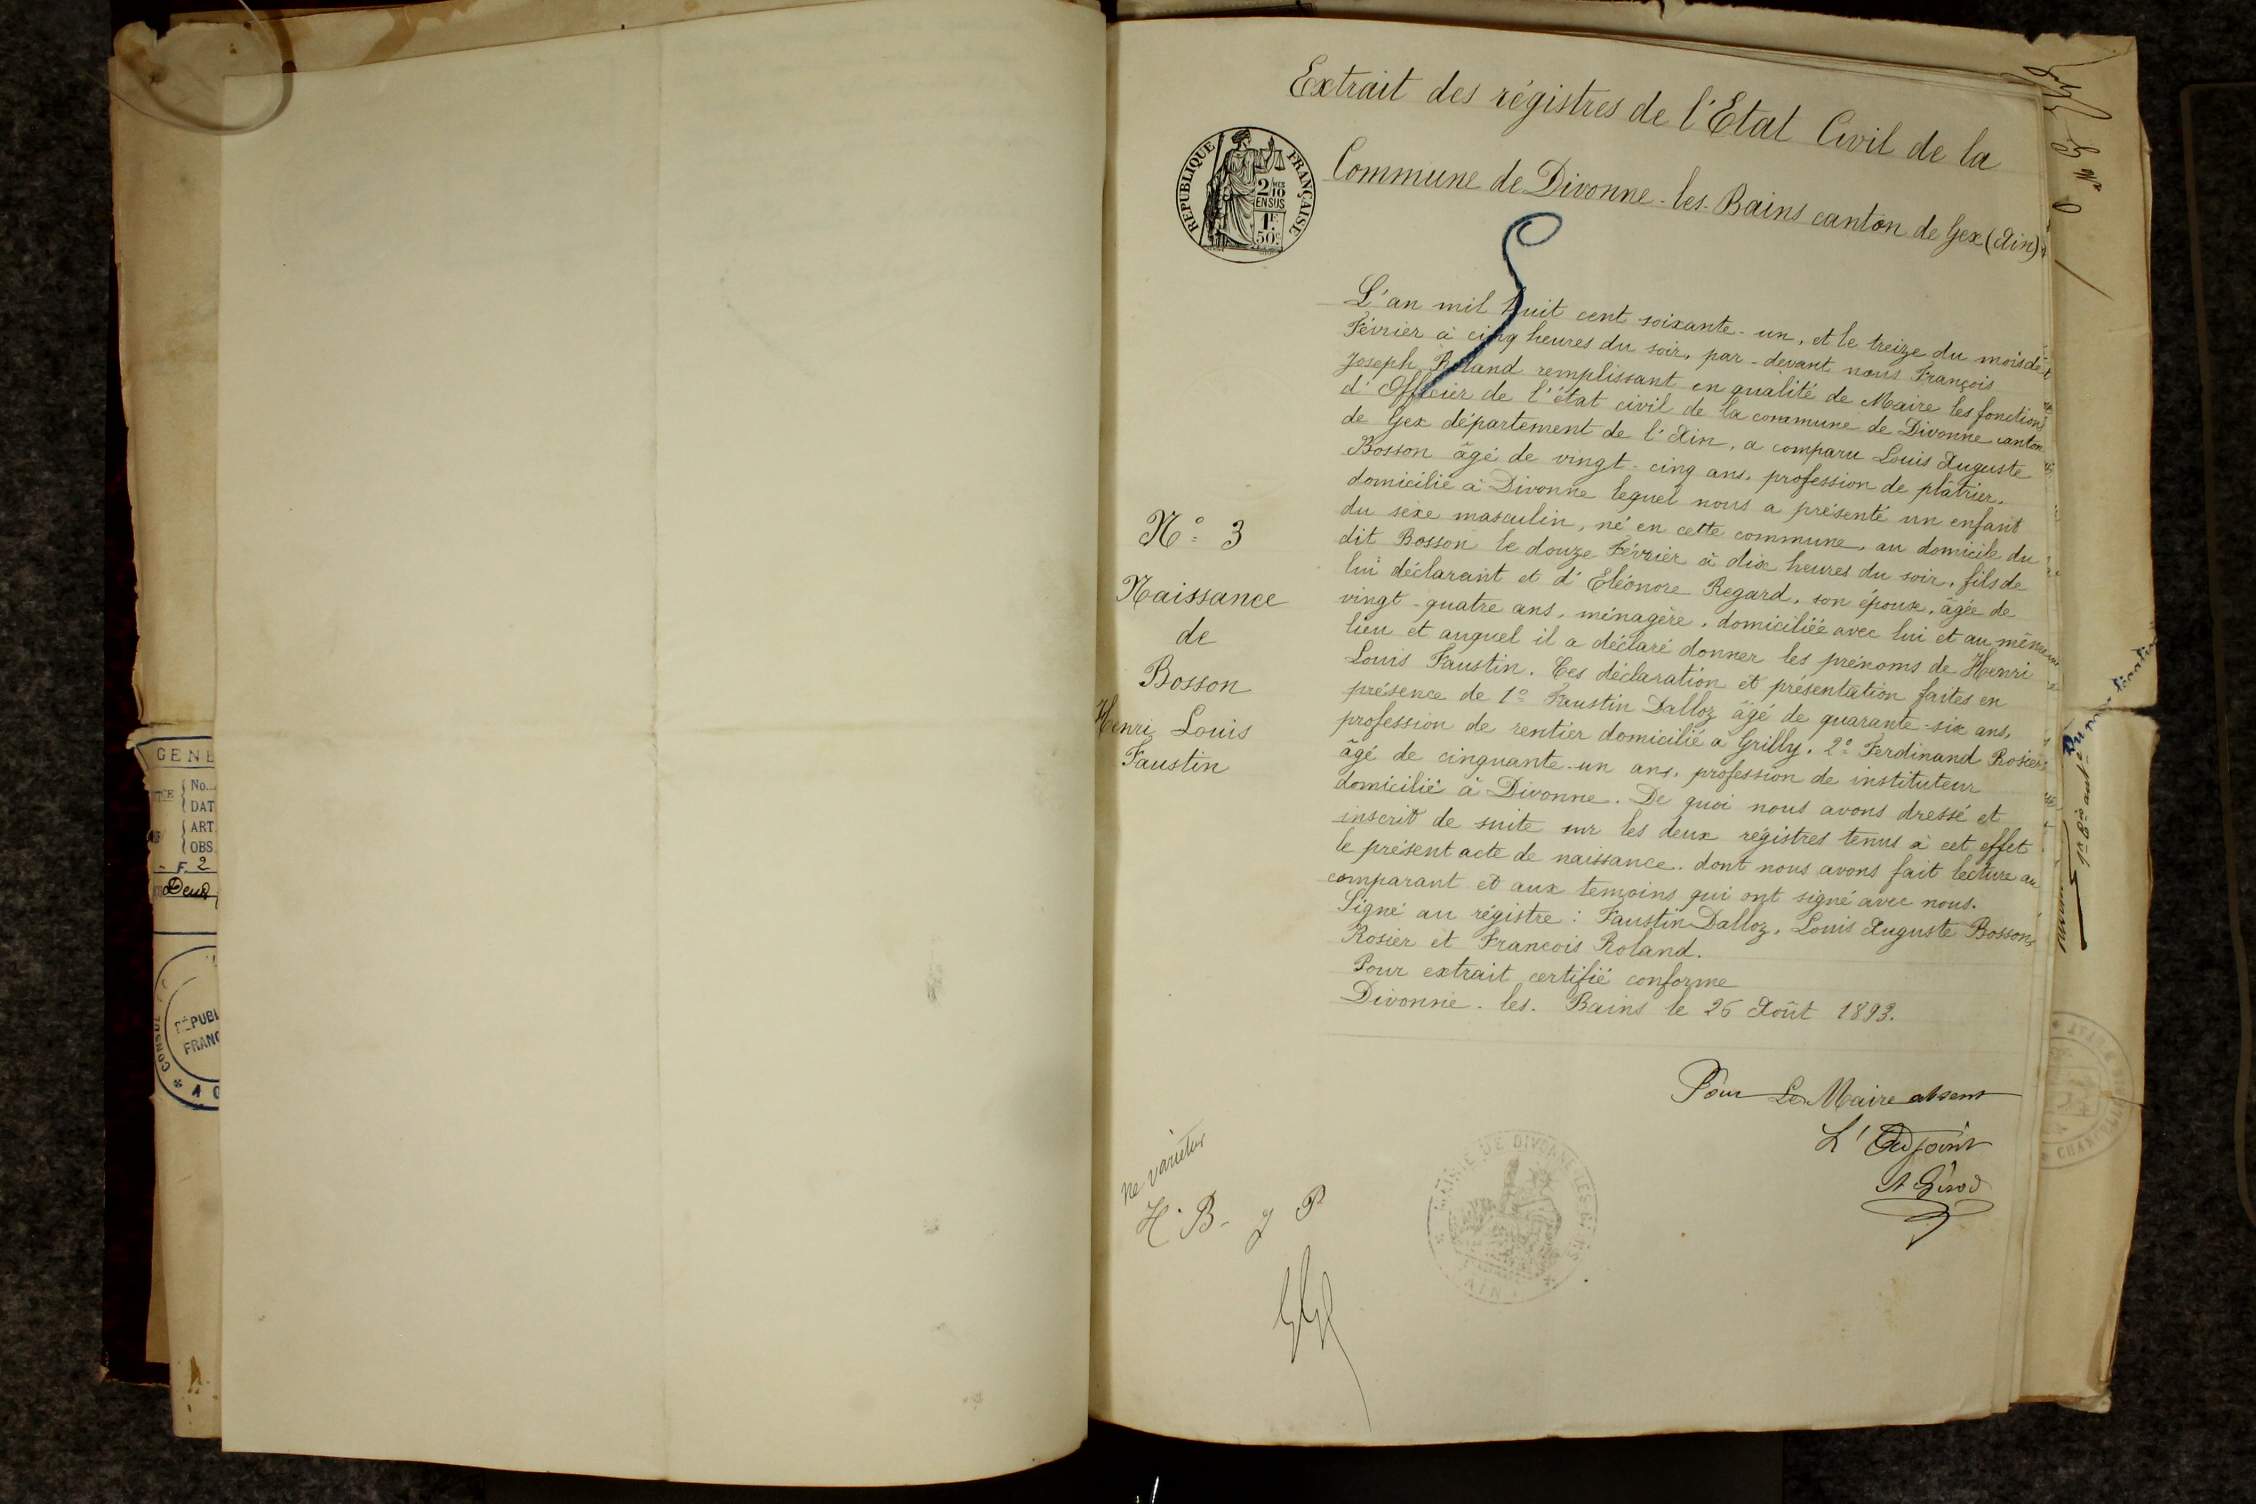 GENE
No.
DAT
ART.
OBS
F. 2
Deux
RÉPUBL
FRANÇ
CONSUL
Extrait des régistres de l'Etat Civil de la
Commune de Divonne-les-Bains canton de Gex (Ain)
RÉPUBLIQUE FRANÇAISE
2 MES
10
EN SUS
1F.
50c
L'an mil huit cent soixante-un, et le treize du mois de
Février à cinq heures du soir, par-devant nous François
Joseph Roland remplissant en qualité de Maire les fonctions
d'Officier de l'état civil de la commune de Divonne canton
de Gex département de l'Ain, a comparu Louis Auguste
Bosson âgé de vingt-cinq ans, profession de plâtrier,
domicilié à Divonne lequel nous a présenté un enfant
du sexe masculin, né en cette commune, au domicile du
dit Bosson le douze Février à dix heures du soir, fils de
lui déclarant et d'Eléonore Regard, son épouse, âgée de
vingt-quatre ans, ménagère, domiciliée avec lui et au même
lieu et auquel il a déclaré donner les prénoms de Henri
Louis Faustin. Ces déclaration et présentation faites en
présence de 1° Faustin Dalloz âgé de quarante-six ans,
profession de rentier domicilié a Grilly. 2° Ferdinand Rosier
âgé de cinquante-un ans, profession de instituteur
domicilié à Divonne. De quoi nous avons dressé et
inscrit de suite sur les deux régistres tenus à cet effet
le présent acte de naissance. dont nous avons fait lecture au
comparant et aux temoins qui ont signé avec nous.
Signé au régistre : Faustin Dalloz, Louis Auguste Bosson,
Rosier et Francois Roland.
Pour extrait certifié conforme
Divonne-les-Bains le 26 Août 1893.
N° 3
Naissance
de
Bosson
Henri Louis
Faustin
Pour Le Maire absent
L'Adjoint
A Girod
MAIRIE DE DIVONNE-LES-BAINS
AIN
ne varietur
H. B-
J P